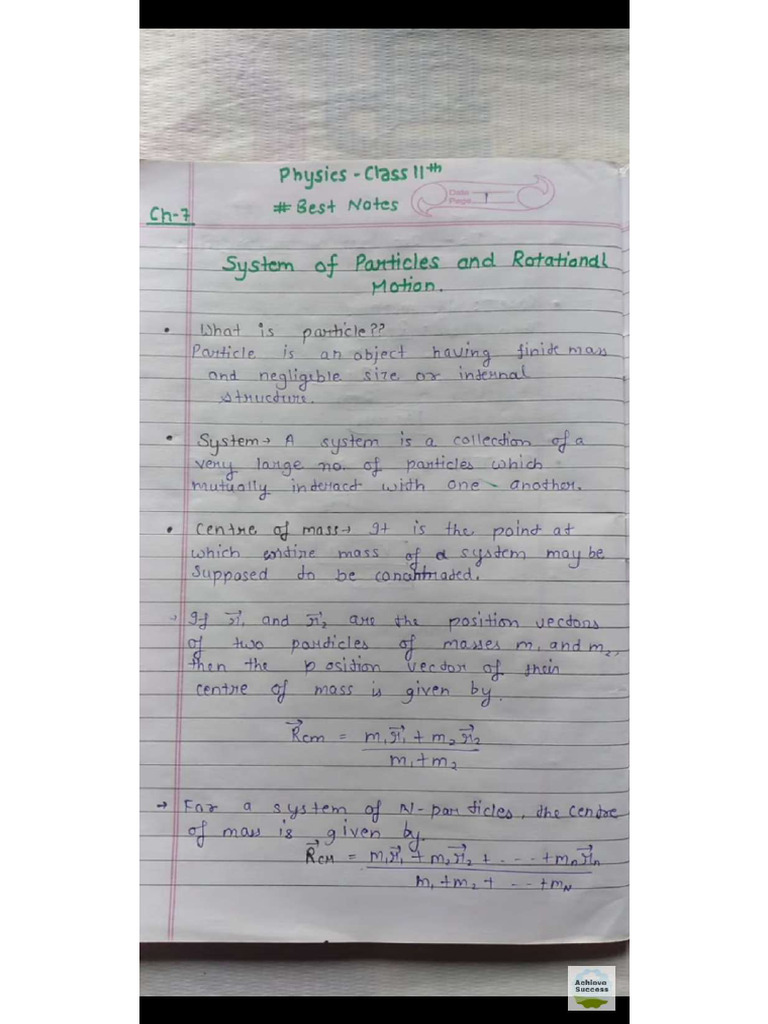 Physics - Class 11th
# Best Notes
Date
Page 1
Ch-7
System of Particles and Rotational
Motion.
• What is particle??
Particle is an object having finite mass
and negligible size or internal
structure.
• System → A system is a collection of a
very large no. of particles which
mutually interact with one - another.
• Centre of mass → It is the point at
which entire mass of a system may be
supposed to be
→ If r⃗₁ and r⃗₂ are the position vectors
of two particles of masses m₁ and m₂,
then the position vector of their
centre of mass is given by.
R⃗cm = m₁r⃗₁ + m₂r⃗₂
m₁ + m₂
→ For a system of N-particles, the centre
of mass is given by.
R⃗CM = m₁r⃗₁ + m₂r⃗₂ + - - - + mₙr⃗ₙ
m₁ + m₂ + - - + m_N
Achieve
Success